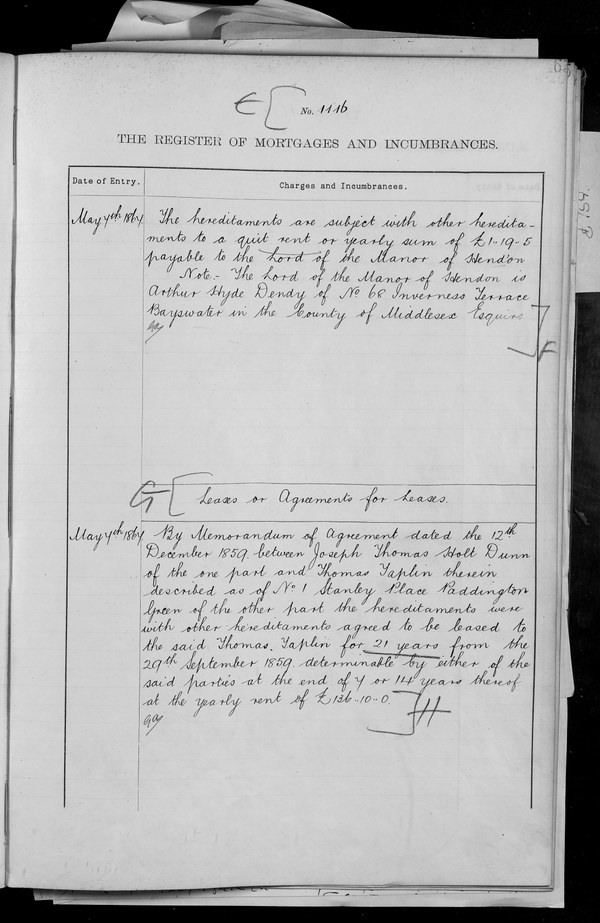 E [ No. 1116
THE REGISTER OF MORTGAGES AND INCUMBRANCES.
Date of Entry.
Charges and Incumbrances.
May 4th 1864
The hereditaments are subject with other heredita-
ments to a quit rent or yearly sum of £1-19-5
payable to the Lord of the Manor of Hendon
Note.- The Lord of the Manor of Hendon is
Arthur Hyde Dendy of No 68 Inverness Terrace
Bayswater in the County of Middlesex Esquire
] F
G [ Leases or Agreements for Leases.
May 4th 1864
By Memorandum of Agreement dated the 12th
December 1859 between Joseph Thomas Holt Dunn
of the one part and Thomas Taplin therein
described as of No 1 Stanley Place Paddington
Green of the other part the hereditaments were
with other hereditaments agreed to be leased to
the said Thomas Taplin for 21 years from the
29th September 1859 determinable by either of the
said parties at the end of 7 or 14 years thereof
at the yearly rent of £136-10-0.
] H